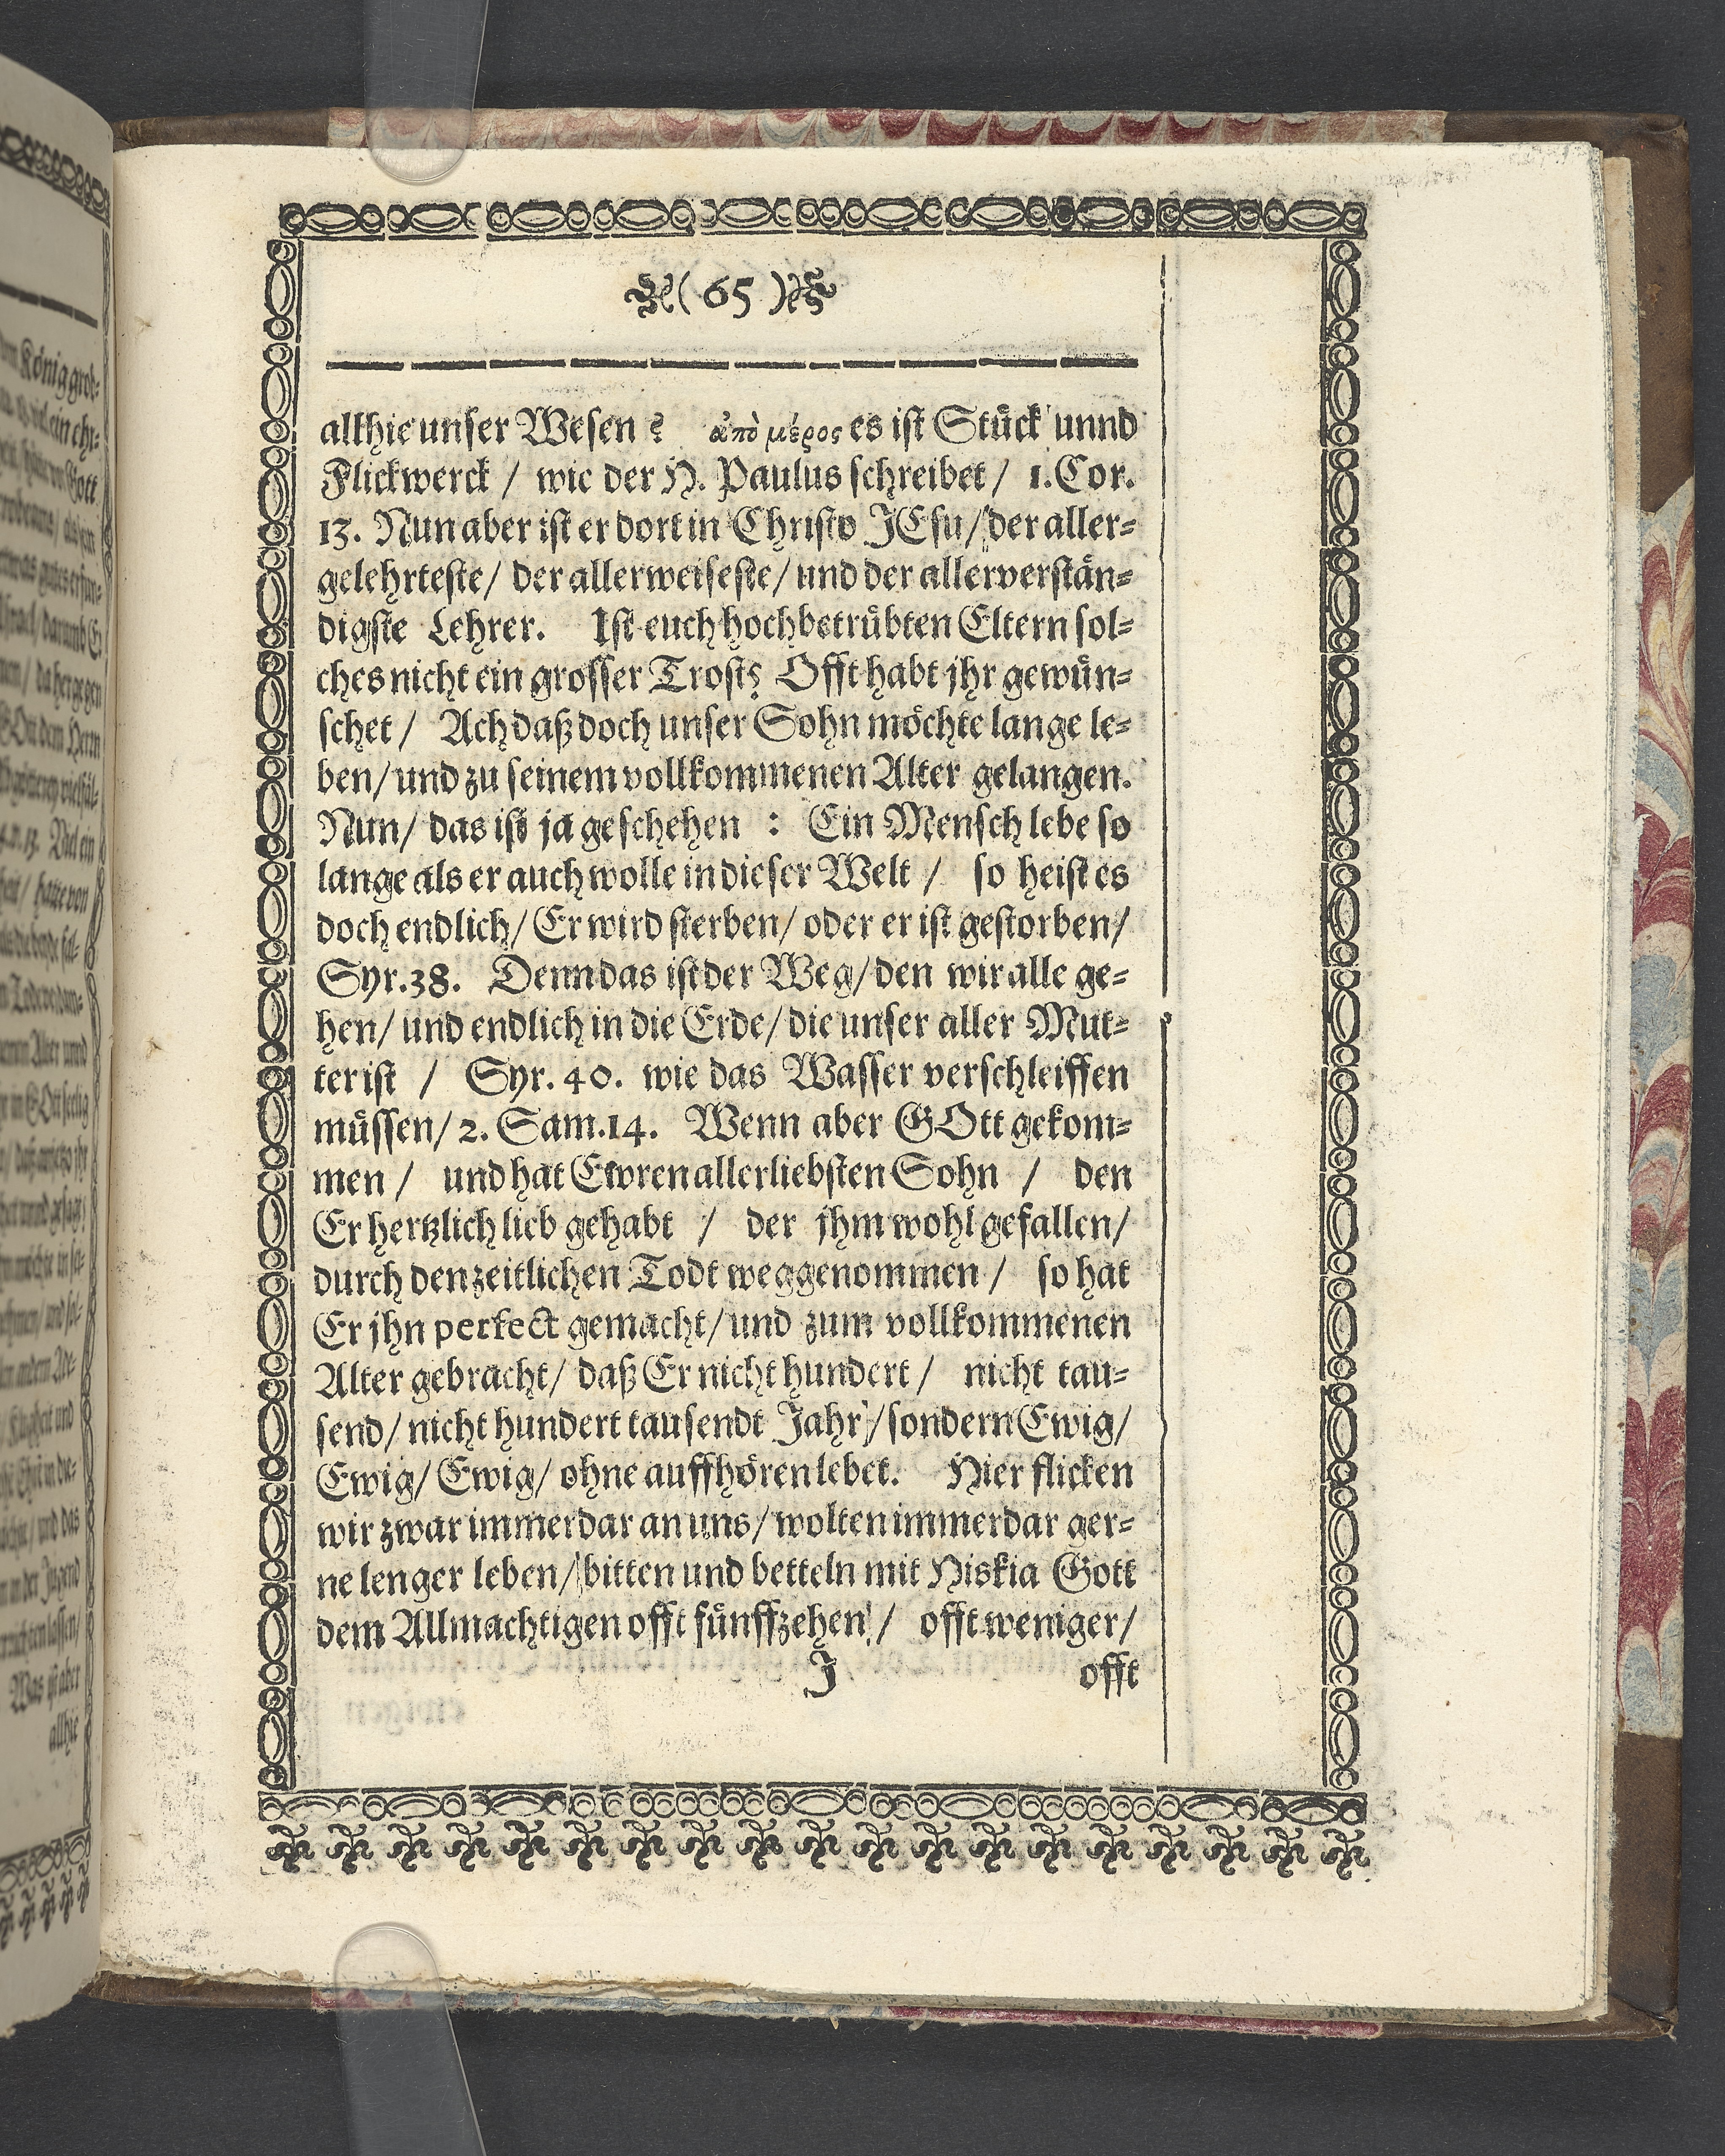 ( 65 )
allhie unser Wesen? ἀπὸ μέρος es ist Stück unnd
Flickwerck / wie der H. Paulus schreibet / 1. Cor.
13. Nun aber ist er dort in Christo JEsu / der aller-
gelehrteste / der allerweiseste / und der allerverstän-
digste Lehrer. Ist euch hochbetrübten Eltern sol-
ches nicht ein grosser Trost? Offt habt jhr gewün-
schet / Ach daß doch unser Sohn möchte lange le-
ben / und zu seinem vollkommenen Alter gelangen.
Nun / das ist ja geschehen : Ein Mensch lebe so
lange als er auch wolle in dieser Welt / so heist es
doch endlich / Er wird sterben / oder er ist gestorben /
Syr. 38. Denn das ist der Weg / den wir alle ge-
hen / und endlich in die Erde / die unser aller Mut-
ter ist / Syr. 40. wie das Wasser verschleiffen
müssen / 2. Sam. 14. Wenn aber GOtt gekom-
men / und hat Ewren allerliebsten Sohn / den
Er hertzlich lieb gehabt / der jhm wohl gefallen /
durch den zeitlichen Todt weggenommen / so hat
Er jhn perfect gemacht / und zum vollkommenen
Alter gebracht / daß Er nicht hundert / nicht tau-
send / nicht hundert tausendt Jahr / sondern Ewig /
Ewig / Ewig / ohne auffhören lebet. Hier flicken
wir zwar immerdar an uns / wolten immerdar ger-
ne lenger leben / bitten und betteln mit Hiskia Gott
dem Allmachtigen offt fünffzehen / offt weniger /
J offt